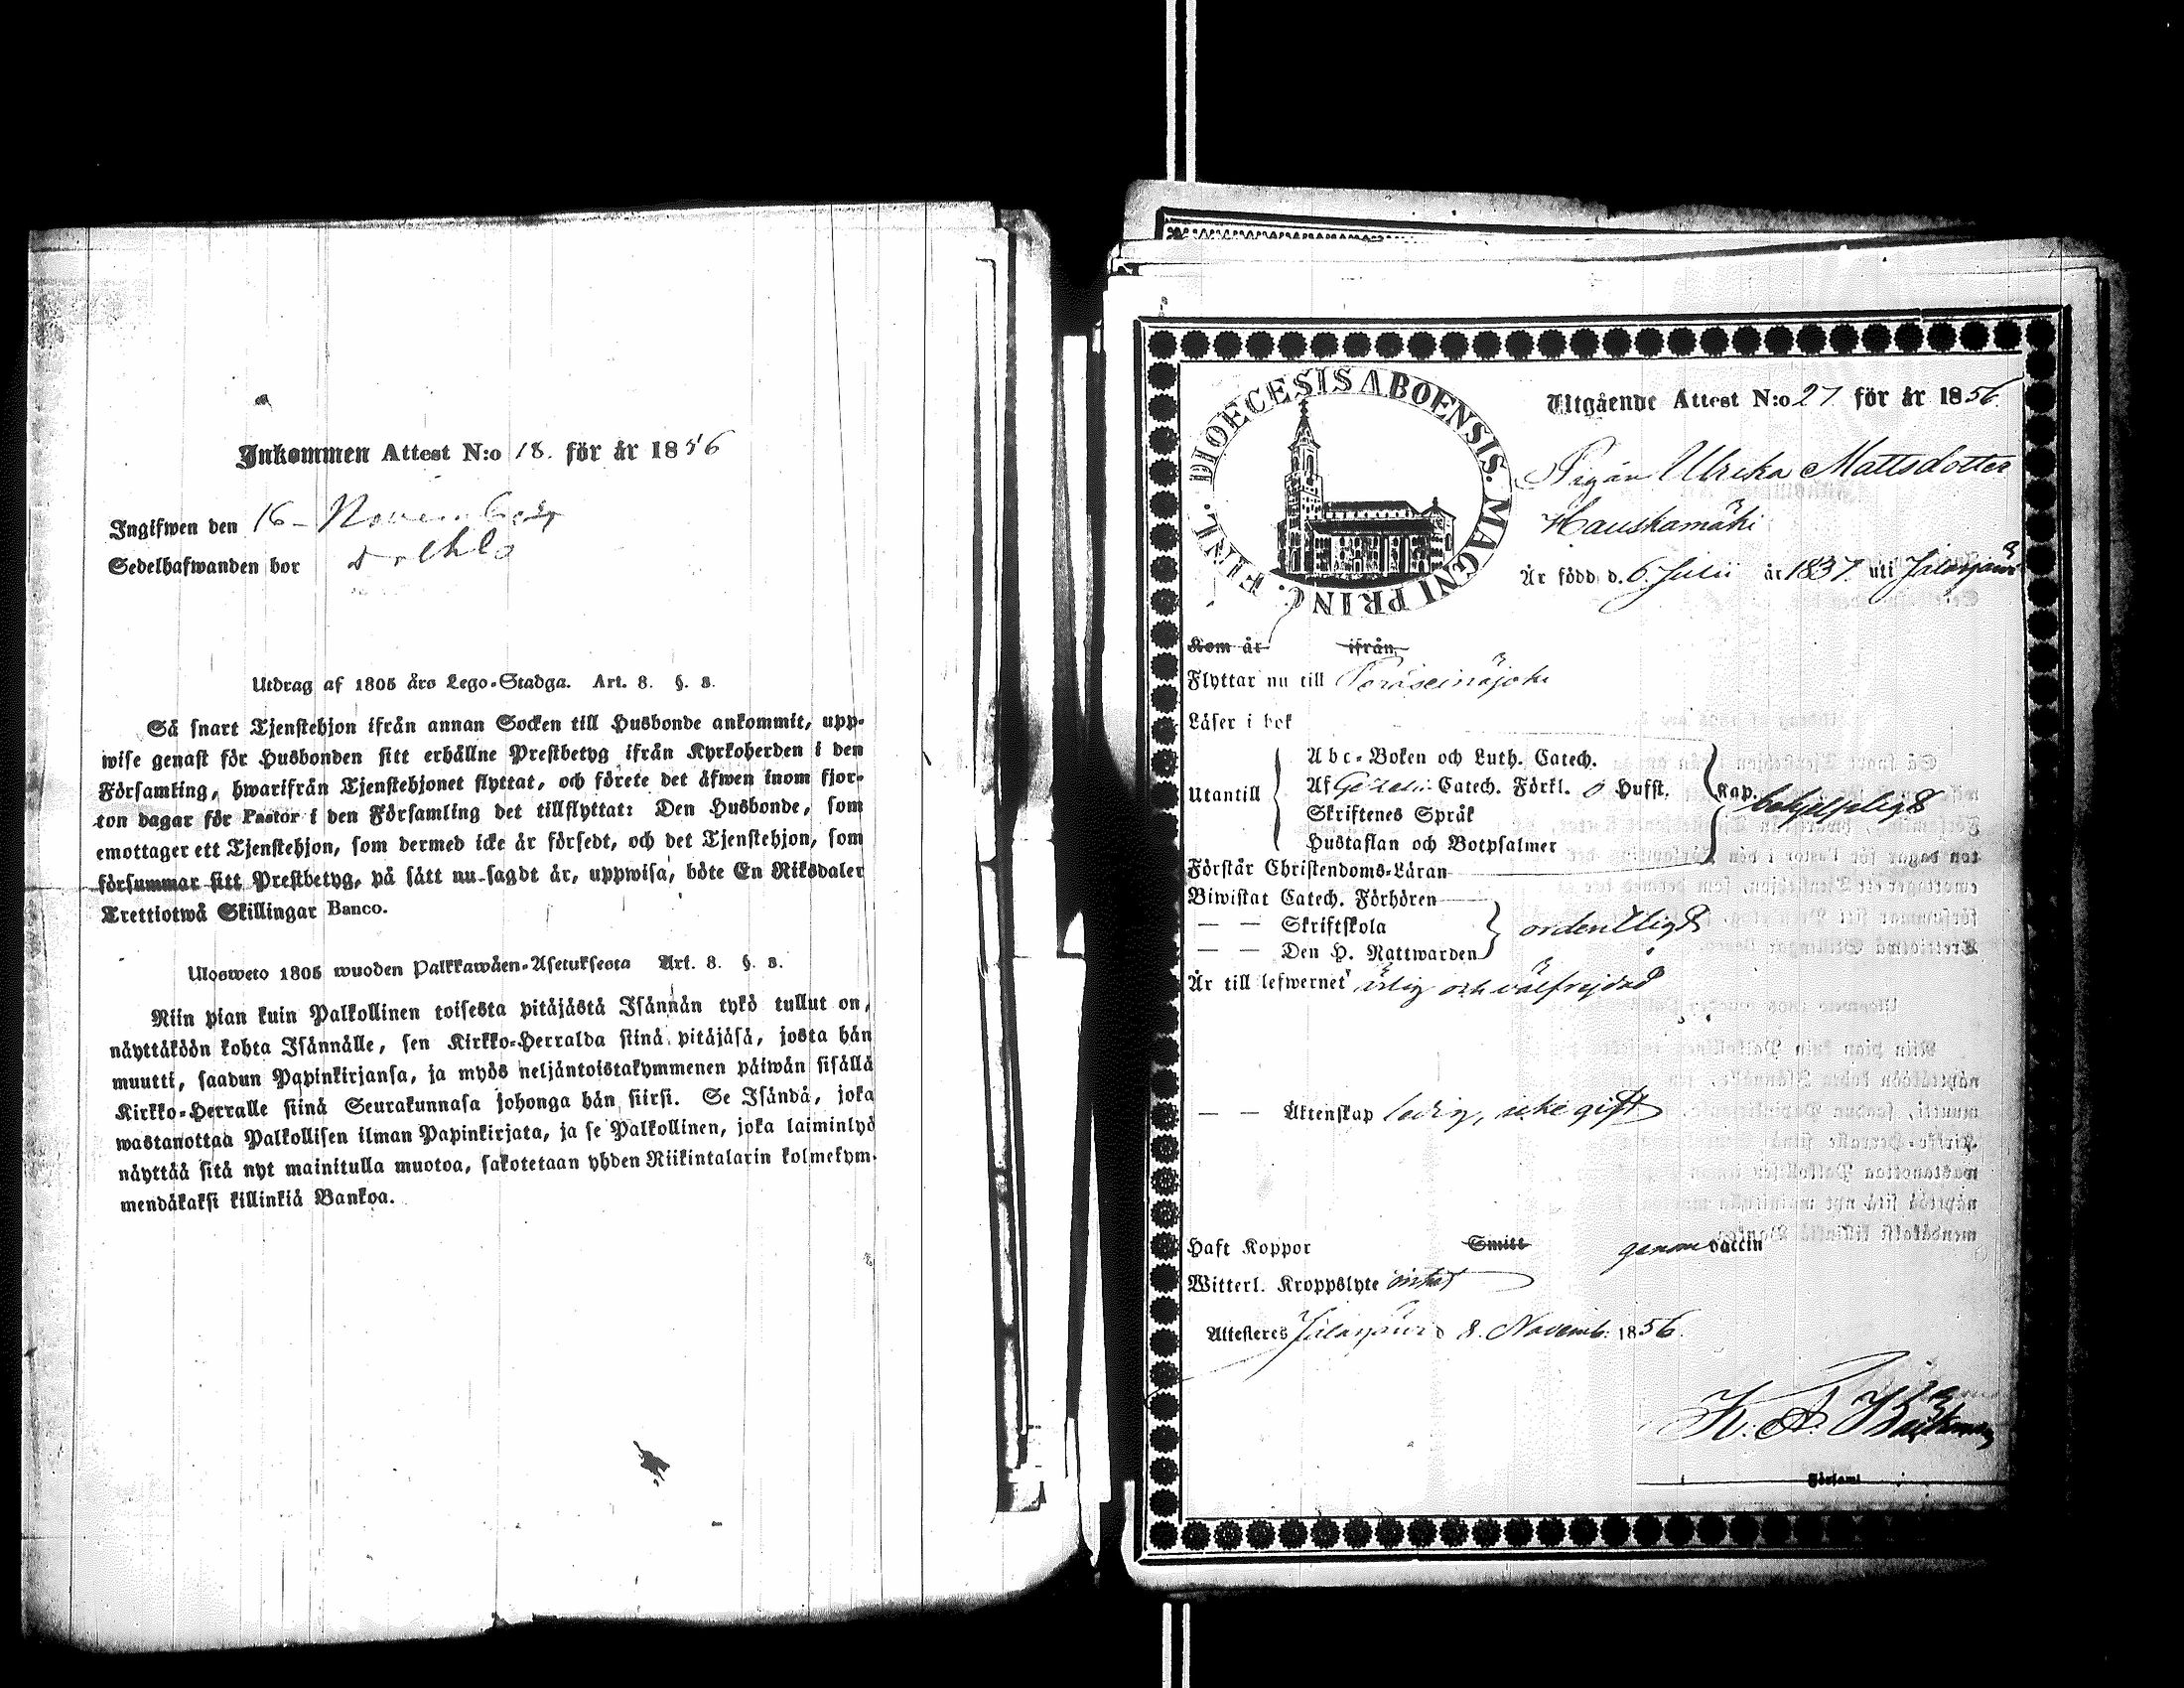 Inkommen Attest N:o 18. för år 1856
Ingifwen den 16 November
Sedelhafwanden bor
Utdrag af 1805 års Lego-Stadga. Art. 8. §. 3.
Så snart Tjenstehjon ifrån annan Socken till Husbonde ankommit, upp-
wise genast för Husbonden sitt erhållne Prestbetyg ifrån Kyrkoherden i den
Församling, hwarifrån Tjenstehjonet flyttat, och förete det äfwen inom fjor-
ton dagar för Pastor i den Församling det tillflyttat: Den Husbonde, som
emottager ett Tjenstehjon, som dermed icke är försedt, och det Tjenstehjon, som
försummar sitt Prestbetyg, på sätt nu sagdt är, uppwisa, böte En Riksdaler
Trettiotwå Skillingar Banco.
Ulosweto 1805 wuoden Palkkawäen-Asetuksesta Art. 8. §. 3.
Niin pian kuin Palkollinen toisesta pitäjästä Isännän tykö tullut on,
näyttäköön kohta Isännälle, sen Kirkko-Herralda siinä pitäjäsä, josta hän
muutti, saadun Papinkirjansa, ja myös neljäntoistakymmenen päiwän sisällä
Kirkko-Herralle siinä Seurakunnasa johonga hän siirsi. Se Isändä, joka
wastanottaa Palkollisen ilman Papinkirjata, ja se Palkollinen, joka laiminlyö
näyttää sitä nyt mainitulla muotoa, sakotetaan yhden Riikintalarin kolmekym-
mendäkaksi killinkiä Bankoa.
FINL. DIOECESIS ABOENSIS. MAGNI PRINC.
Utgående Attest N:o 27 för år 1856.
Pigan Ulrika Mattsdotter
Hauskamäki
Är född d. 6 Julii år 1837 uti Jalasjärvi
Kom år ifrån
Flyttar nu till Peräseinäjoki
Läser i bok
Utantill
Abc-Boken och Luth. Catech.
Af Gezelii Catech. Förkl. o Hufst. Kap.
Skriftenes Språk
Hustaflan och Botpsalmer
behjelpligt
Förstår Christendoms-Läran
Biwistat Catech. Förhören
— — Skriftskola
— — Den H. Nattwarden
ordentligt
Är till lefwernet ärlig och välfrejdad
— — Äktenskap ledig, icke gift
Haft Koppor Smitt genom vaccin
Witterl. Kroppslyte intet
Attesteras Jalasjärvi d 8. Novemb. 1856.
K. A. Bäckman
Församl